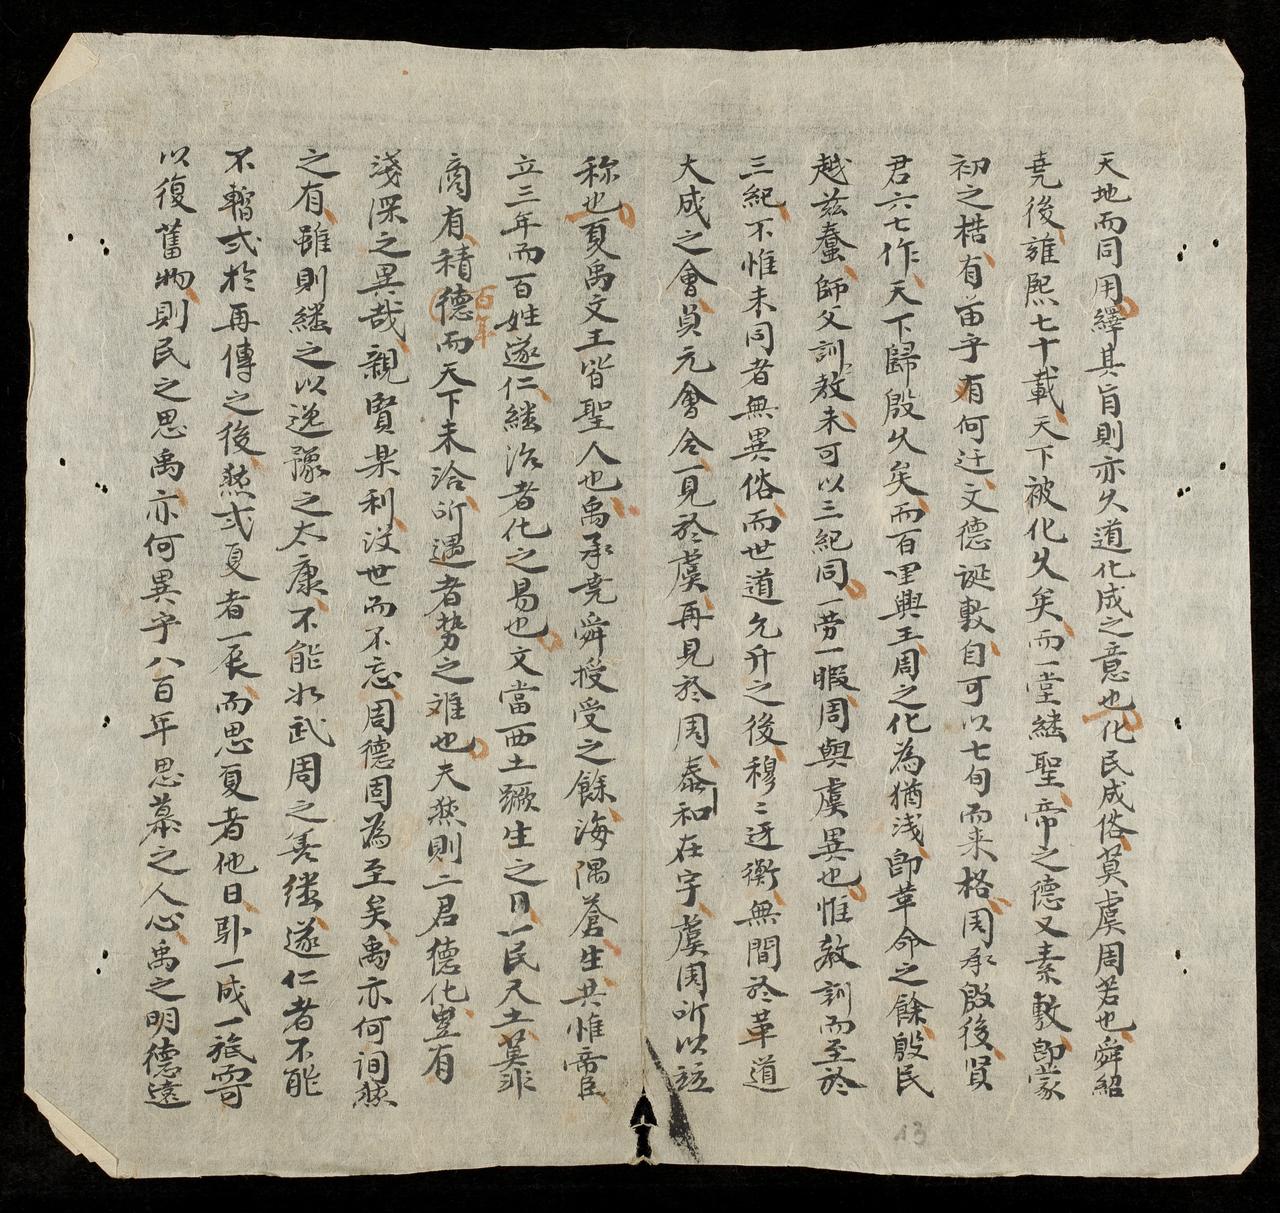 天地而同用繹其旨則亦久道化成之意也化民成俗莫虞周若也舜紹
堯後雍熙七十載天下被化久矣而一堂繼聖帝之德又素敷即蒙
初之梏有苗乎有何迂文德誕敷自可以七旬而来格周承殷後賢
君六七作天下歸殷久矣而百里興王周之化為猶淺即革命之餘殷民
越茲蠢師父訓教未可以三紀同一勞一暇周與虞異也惟教訓而至於
三紀不惟未同者無異俗而世道允升之後穆〻迓衡無間於革道
大成之會貞元會合一見於虞再見於周泰和在宇虞周所以
称也夏禹文王皆聖人也禹承堯舜授受之餘海隅蒼生共惟帝臣
立三年而百姓遂仁繼治者化之易也文當西土蹶生之日一民尺土莫非
商有積德百年而天下未洽所遇者势之难也夫然則二君德化豈有
淺深之異哉親賢樂利沒世而不忘周德固為至矣禹亦何間然
之有雖則繼之以逸豫之太康不能水武周之善继遂仁者不能
不暫弍於再傳之後然弍夏者一辰而思夏者他日卧一成一旅而可
以復舊物則民之思禹亦何異乎八百年思慕之人心禹之明德遠